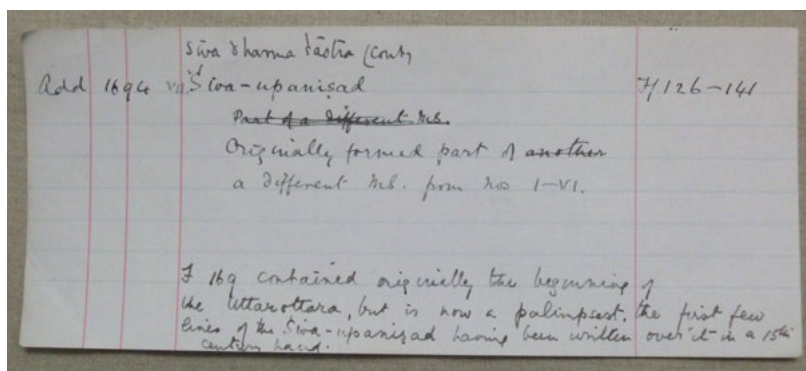 Śiva dharma śāstra (cont)
Add 1694 VII Śiva-upaniṣad ff 126-141
Part of a different MS.
Originally formed part of another
a different MS. from nos I-VI.
F 169 contained originally the beginning of
the Uttarottara, but is now a palimpsest. the first few
lines of the Śiva-upaniṣad having been written over it in a 15th
century hand.